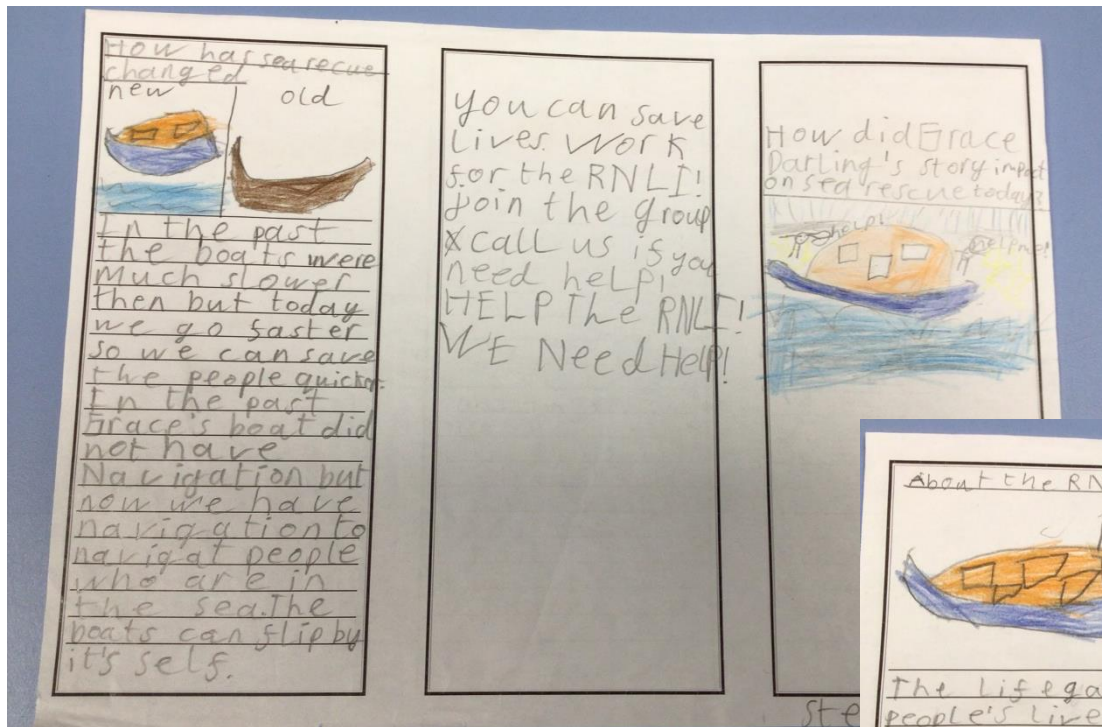 How has sea recue
changed
new
old
In the past
the boats were
much slower
then but today
we go faster
so we can save
the people quicker.
In the past
Grace's boat did
not have
Navigation but
now we have
navigation to
navigat people
who are in
the sea. The
boats can flip by
it's self.
you can save
lives. Work
for the RNLI!
Join the group
call us is you
need help!
HELP The RNLI!
WE Need Help!
How did Grace
Darling's story impact
on sea rescue today?
help!
help me!
Ste
About the RN
The lifega
people's live